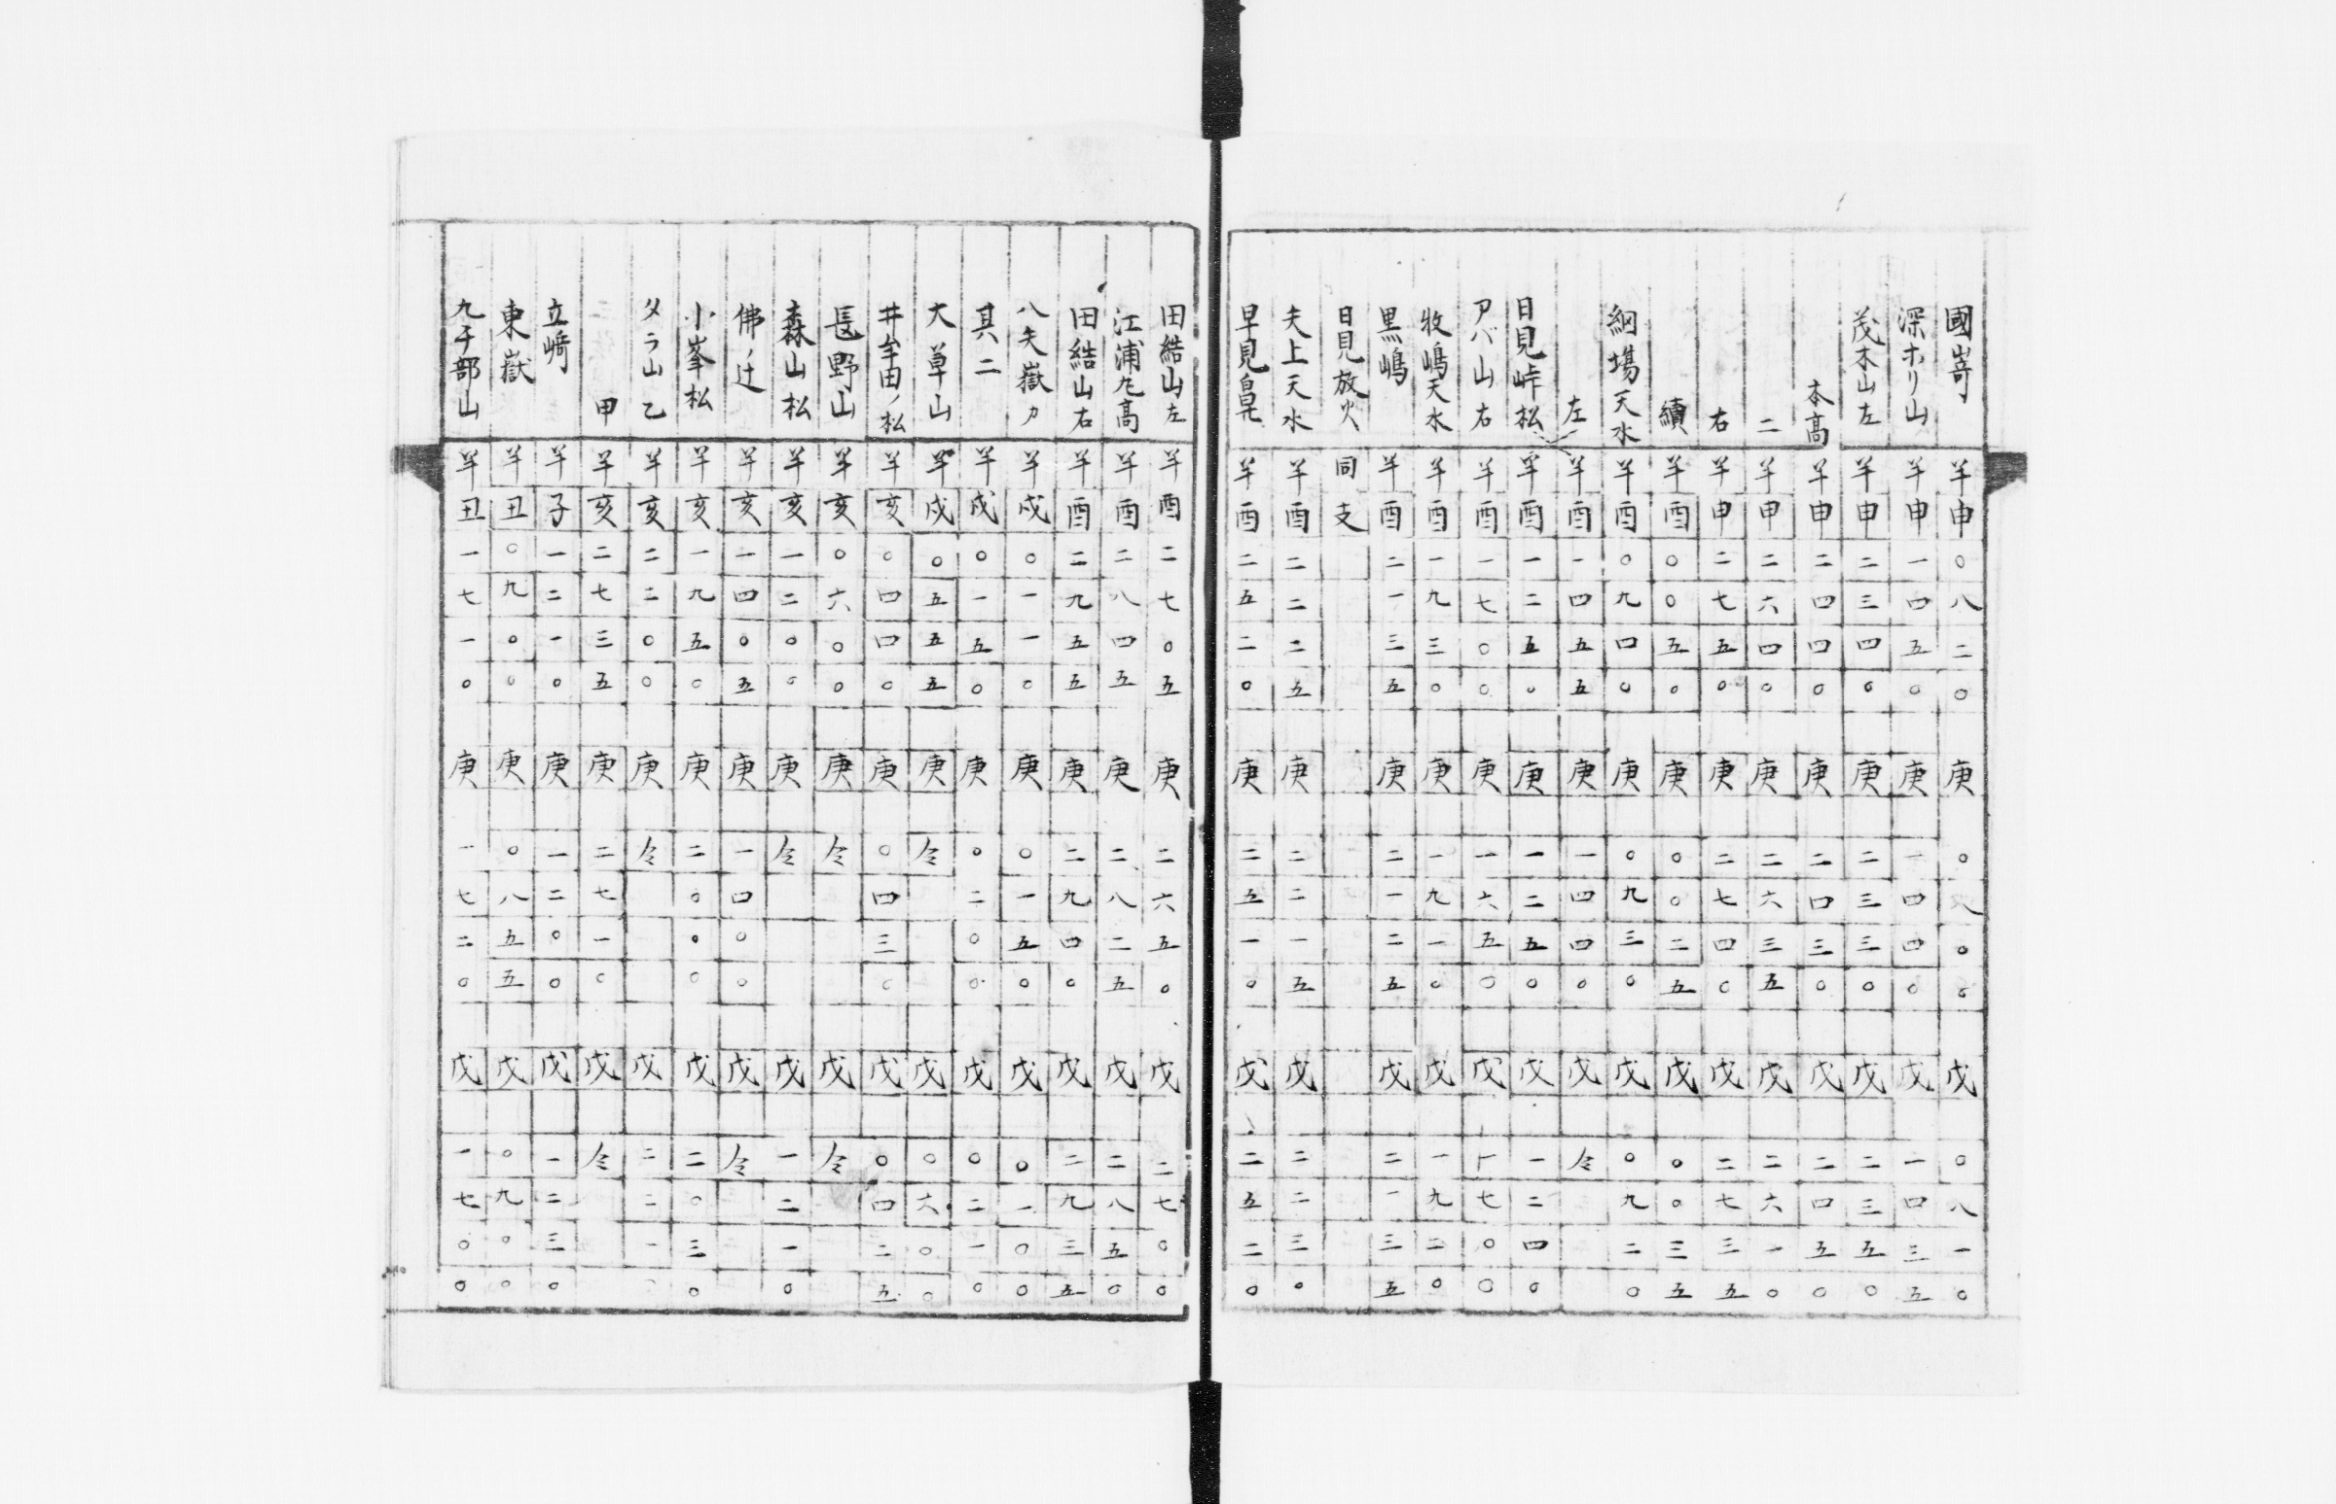 國﨑 羊 申 〇 八 二 〇 庚 〇 八 〇 〇 戊 〇 八 一 〇
深ホリ山 羊 申 一 四 五 〇 庚 一 四 四 〇 戊 一 四 三 五
茂木山左 羊 申 二 三 四 〇 庚 二 三 三 〇 戊 二 三 五 〇
本高 羊 申 二 四 四 〇 庚 二 四 三 〇 戊 二 四 五 〇
二 羊 申 二 六 四 〇 庚 二 六 三 五 戊 二 六 一 〇
右 羊 申 二 七 五 〇 庚 二 七 四 〇 戊 二 七 三 五
續 羊 酉 〇 〇 五 〇 庚 〇 〇 二 五 戊 〇 〇 三 五
網塲天水 羊 酉 〇 九 四 〇 庚 〇 九 三 〇 戊 〇 九 二 〇
左 羊 酉 一 四 五 五 庚 一 四 四 〇 戊 仝
日見峠松 羊 酉 一 二 五 〇 庚 一 二 五 〇 戊 一 二 四 〇
アバ山右 羊 酉 一 七 〇 〇 庚 一 六 五 〇 戊 一 七 〇 〇
牧嶋天水 羊 酉 一 九 三 〇 庚 一 九 一 〇 戊 一 九 二 〇
黒嶋 羊 酉 二 一 三 五 庚 二 一 二 五 戊 二 一 三 五
日見放火 同 支
夫上天水 羊 酉 二 二 二 五 庚 二 二 一 五 戊 二 二 三 〇
早見 羊 酉 二 五 二 〇 庚 二 五 一 〇 戊 二 五 二 〇
田結山左 羊 酉 二 七 〇 五 庚 二 六 五 〇 戊 二 七 〇 〇
江浦 高 羊 酉 二 八 四 五 庚 二 八 二 五 戊 二 八 五 〇
田結山右 羊 酉 二 九 五 五 庚 二 九 四 〇 戊 二 九 三 五
八天嶽 羊 戌 〇 一 一 〇 庚 〇 一 五 〇 戊 〇 一 〇 〇
其二 羊 戌 〇 一 五 〇 庚 〇 二 〇 〇 戊 〇 二 一 〇
大草山 羊 戌 〇 五 五 五 庚 仝 戊 〇 六 〇 〇
井牟田ノ松 羊 亥 〇 四 四 〇 庚 〇 四 三 〇 戊 〇 四 二 五
長野山 羊 亥 〇 六 〇 〇 庚 仝 戊 仝
森山松 羊 亥 一 二 〇 〇 庚 仝 戊 一 二 一 〇
佛ノ辻 羊 亥 一 四 〇 五 庚 一 四 〇 〇 戊 仝
小峯松 羊 亥 一 九 五 〇 庚 二 〇 〇 〇 戊 二 〇 三 〇
タラ山乙 羊 亥 二 二 〇 〇 庚 仝 戊 二 二 一 〇
甲 羊 亥 二 七 三 五 庚 二 七 一 〇 戊 仝
立﨑 羊 子 一 二 一 〇 庚 一 二 〇 〇 戊 一 二 三 〇
東嶽 羊 丑 〇 九 〇 〇 庚 〇 八 五 五 戊 〇 九 〇 〇
九千部山 羊 丑 一 七 一 〇 庚 一 七 二 〇 戊 一 七 〇 〇